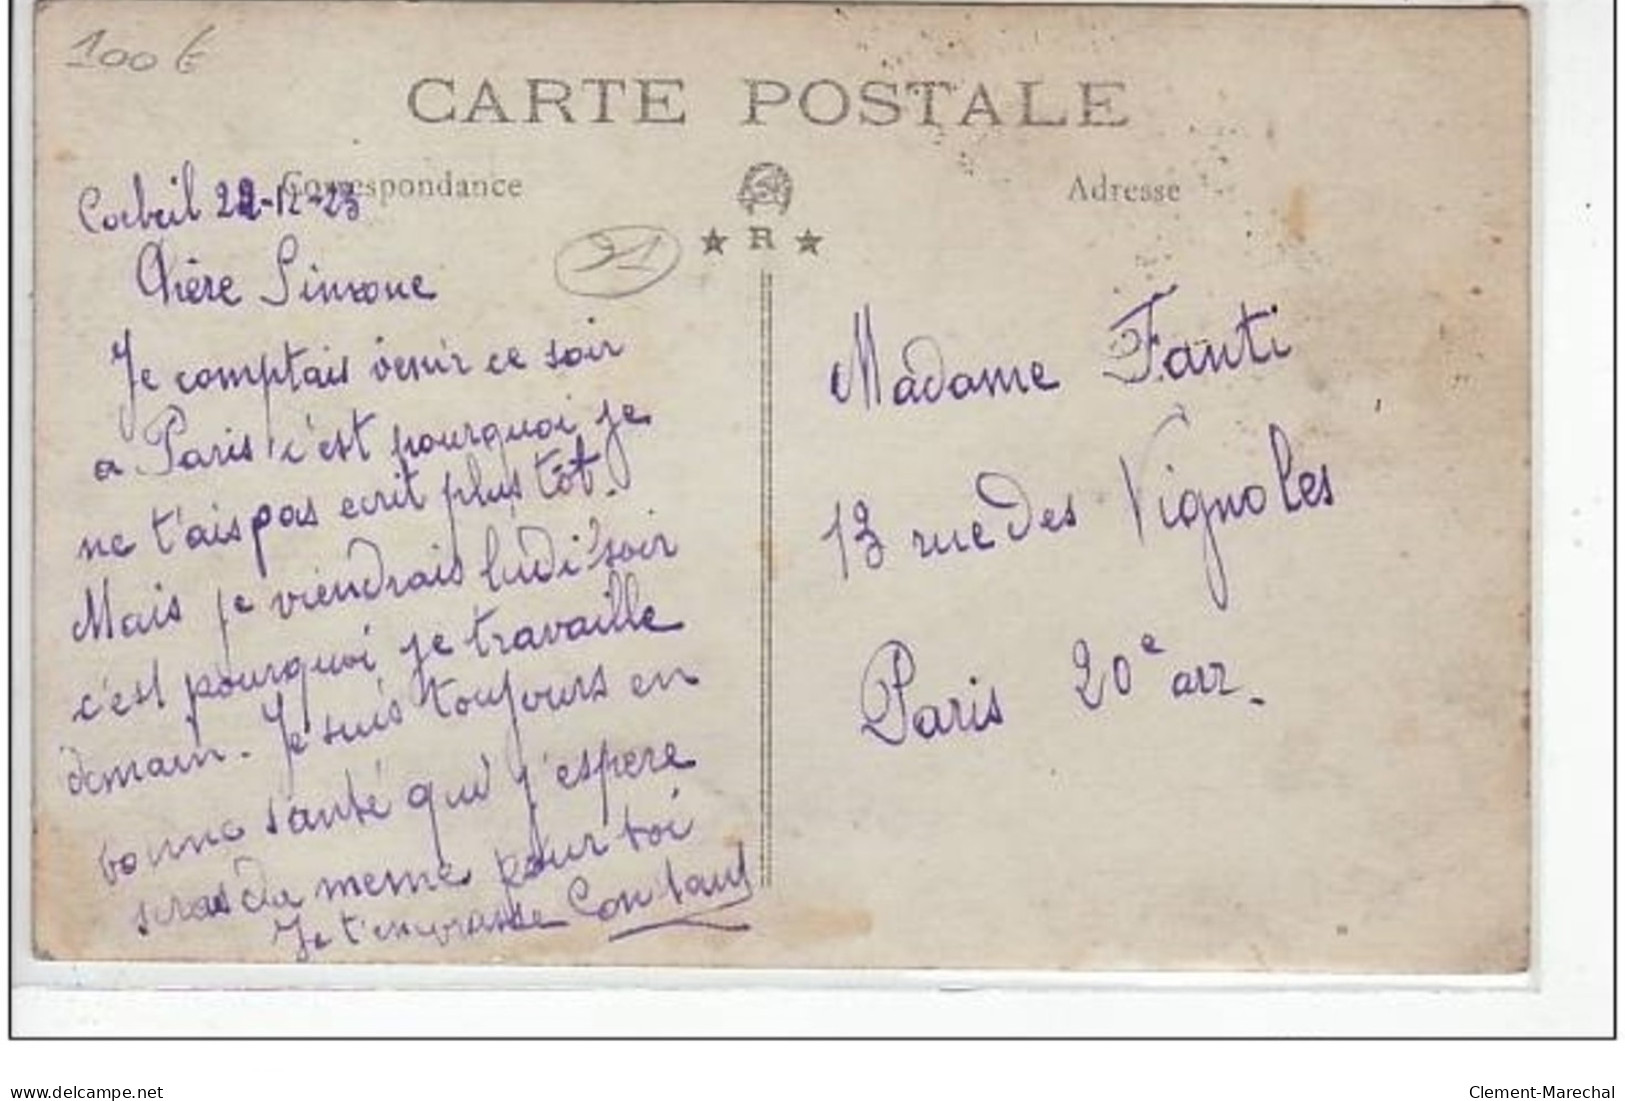 100 €
CARTE POSTALE
Correspondance
Adresse
R
Corbeil 22-12-23
91
Chère Simone
Je comptais venir ce soir
a Paris c'est pourquoi je
ne t'ais pas ecrit plus tôt.
Mais je viendrais ludi soir
c'est pourquoi je travaille
demain. Je suis toujours en
bonne santé qui j'espere
seras da meme pour toi
Je t'embrasse
Madame Fanti
13 rue des Vignoles
Paris 20e arr.
delcampe.net
Clement-Marechal